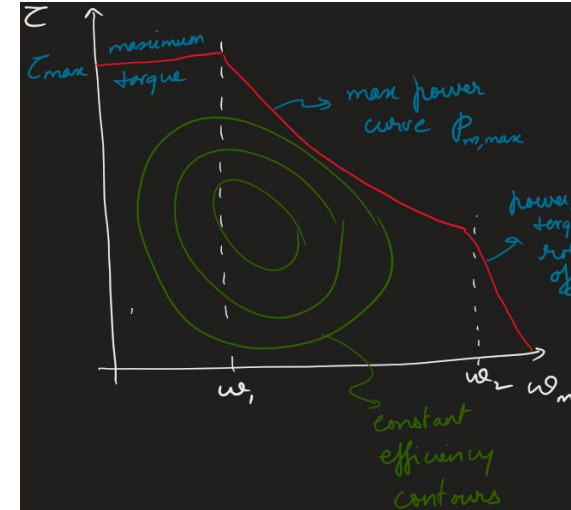 τ
maximum
τmax
torque
max power
curve Pm,max
power
ω1
ω2
ωm
constant
efficiency
contours